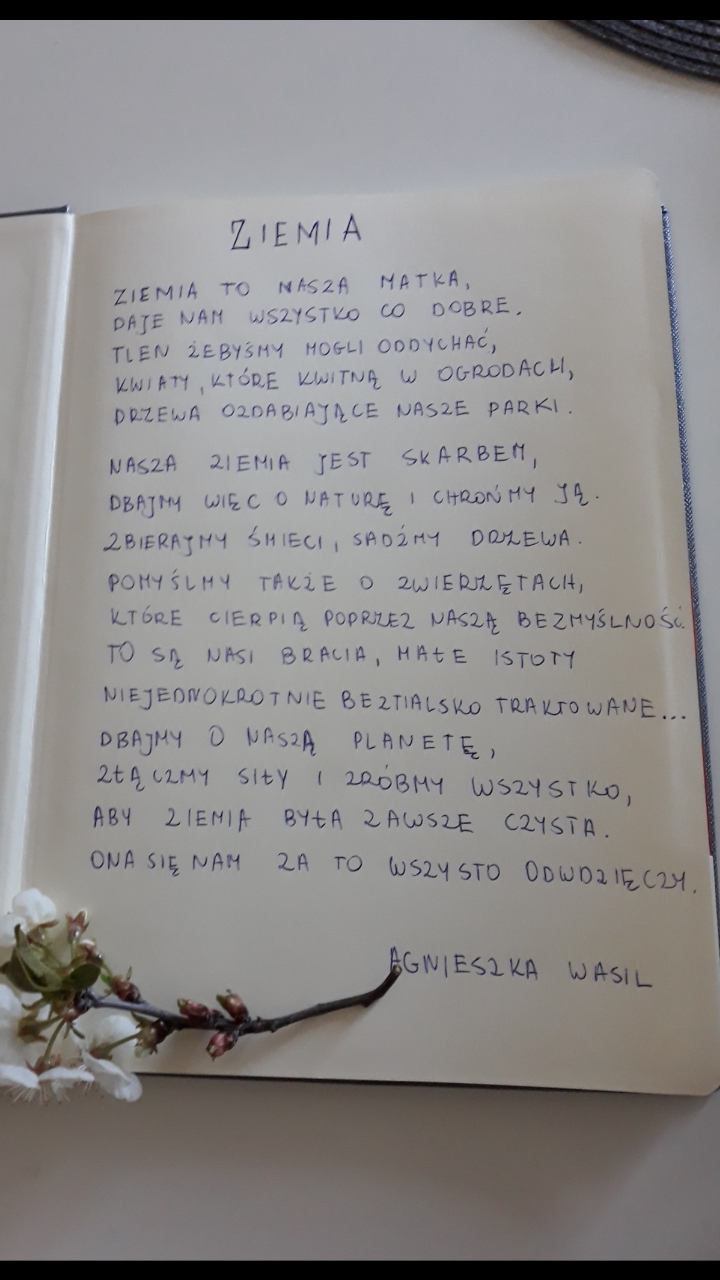 ZIEMIA
ZIEMIA TO NASZA MATKA,
DAJE NAM WSZYSTKO CO DOBRE.
TLEN ŻEBYŚMY MOGLI ODDYCHAĆ,
KWIATY, KTÓRE KWITNĄ W OGRODACH,
DRZEWA OZDABIAJĄCE NASZE PARKI.
NASZA ZIEMIA JEST SKARBEM,
DBAJMY WIĘC O NATURĘ I CHROŃMY JĄ.
ZBIERAJMY ŚMIECI, SADŹMY DRZEWA.
POMYŚLMY TAKŻE O ZWIERZĘTACH,
KTÓRE CIERPIĄ POPRZEZ NASZĄ BEZMYŚLNOŚĆ.
TO SĄ NASI BRACIA, MAŁE ISTOTY
NIEJEDNOKROTNIE BEZTIALSKO TRAKTOWANE...
DBAJMY O NASZĄ PLANETĘ,
ZŁĄCZMY SIŁY I ZRÓBMY WSZYSTKO,
ABY ZIEMIA BYŁA ZAWSZE CZYSTA.
ONA SIĘ NAM ZA TO WSZYSTO ODWDZIĘCZY.
AGNIESZKA WASIL